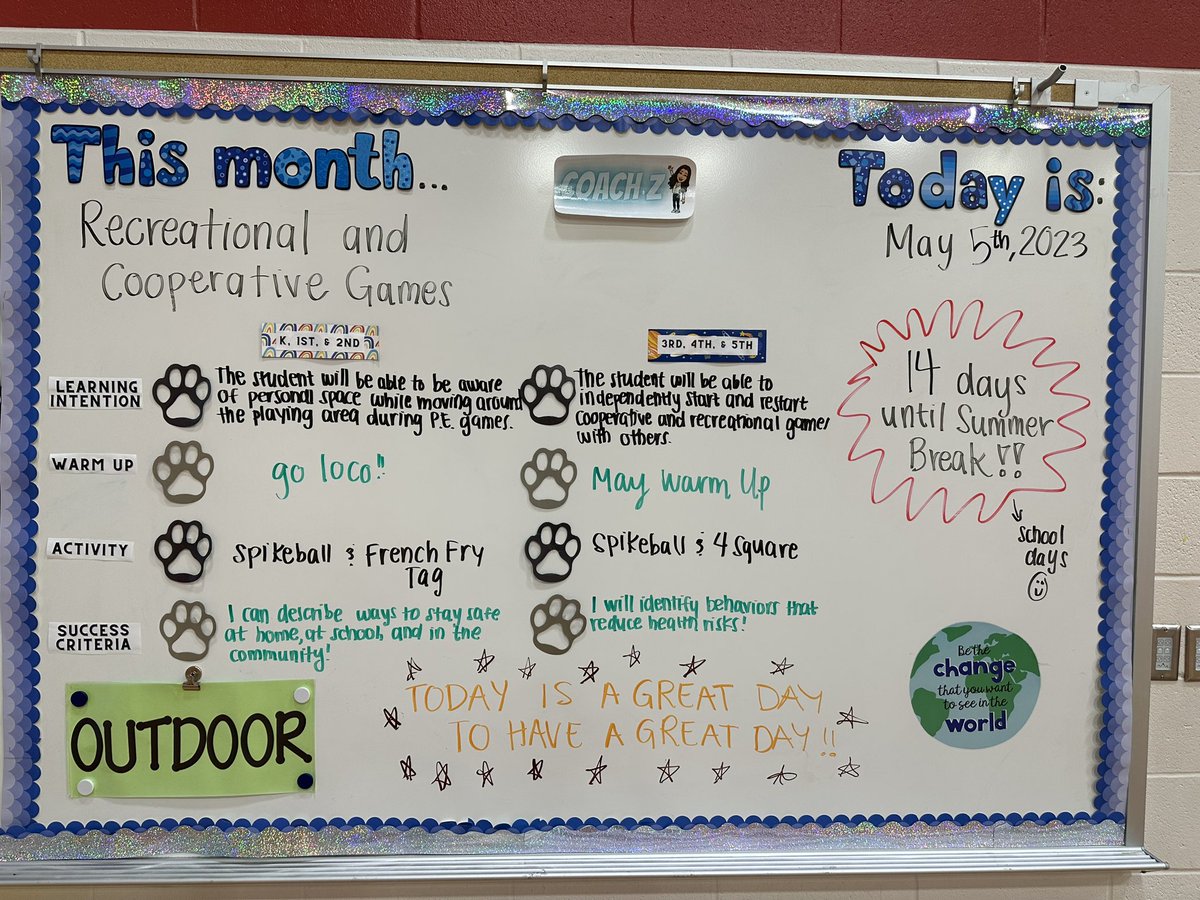 This month...
COACH-Z
Today is:
Recreational and
Cooperative Games
May 5th, 2023
14 days
until Summer
Break!!
school
days
K, 1ST, & 2ND
3RD, 4TH, & 5TH
LEARNING
INTENTION
The student will be able to be aware
of personal space while moving around
the playing area during P.E. games.
The student will be able to
independently start and restart
cooperative and recreational games
with others.
WARM UP
go loco!!
May Warm Up
ACTIVITY
Spikeball & French Fry
Tag
Spikeball & 4 Square
SUCCESS
CRITERIA
I can describe ways to stay safe
at home, at school, and in the
community!
I will identify behaviors that
reduce health risks!
OUTDOOR
TODAY IS A GREAT DAY
TO HAVE A GREAT DAY!!
Be the
change
that you want
to see in the
world